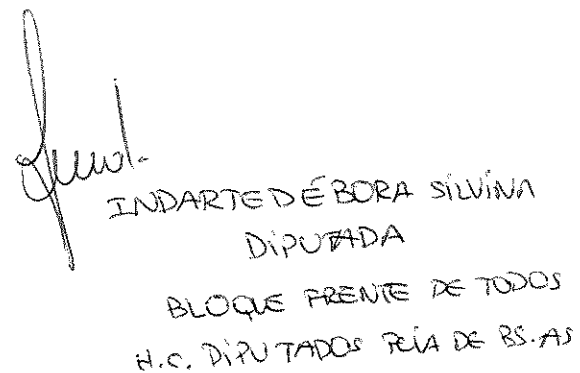 INDARTE DÉBORA SILVINA
DIPUTADA
BLOQUE FRENTE DE TODOS
H.C. DIPUTADOS PCIA DE BS.AS